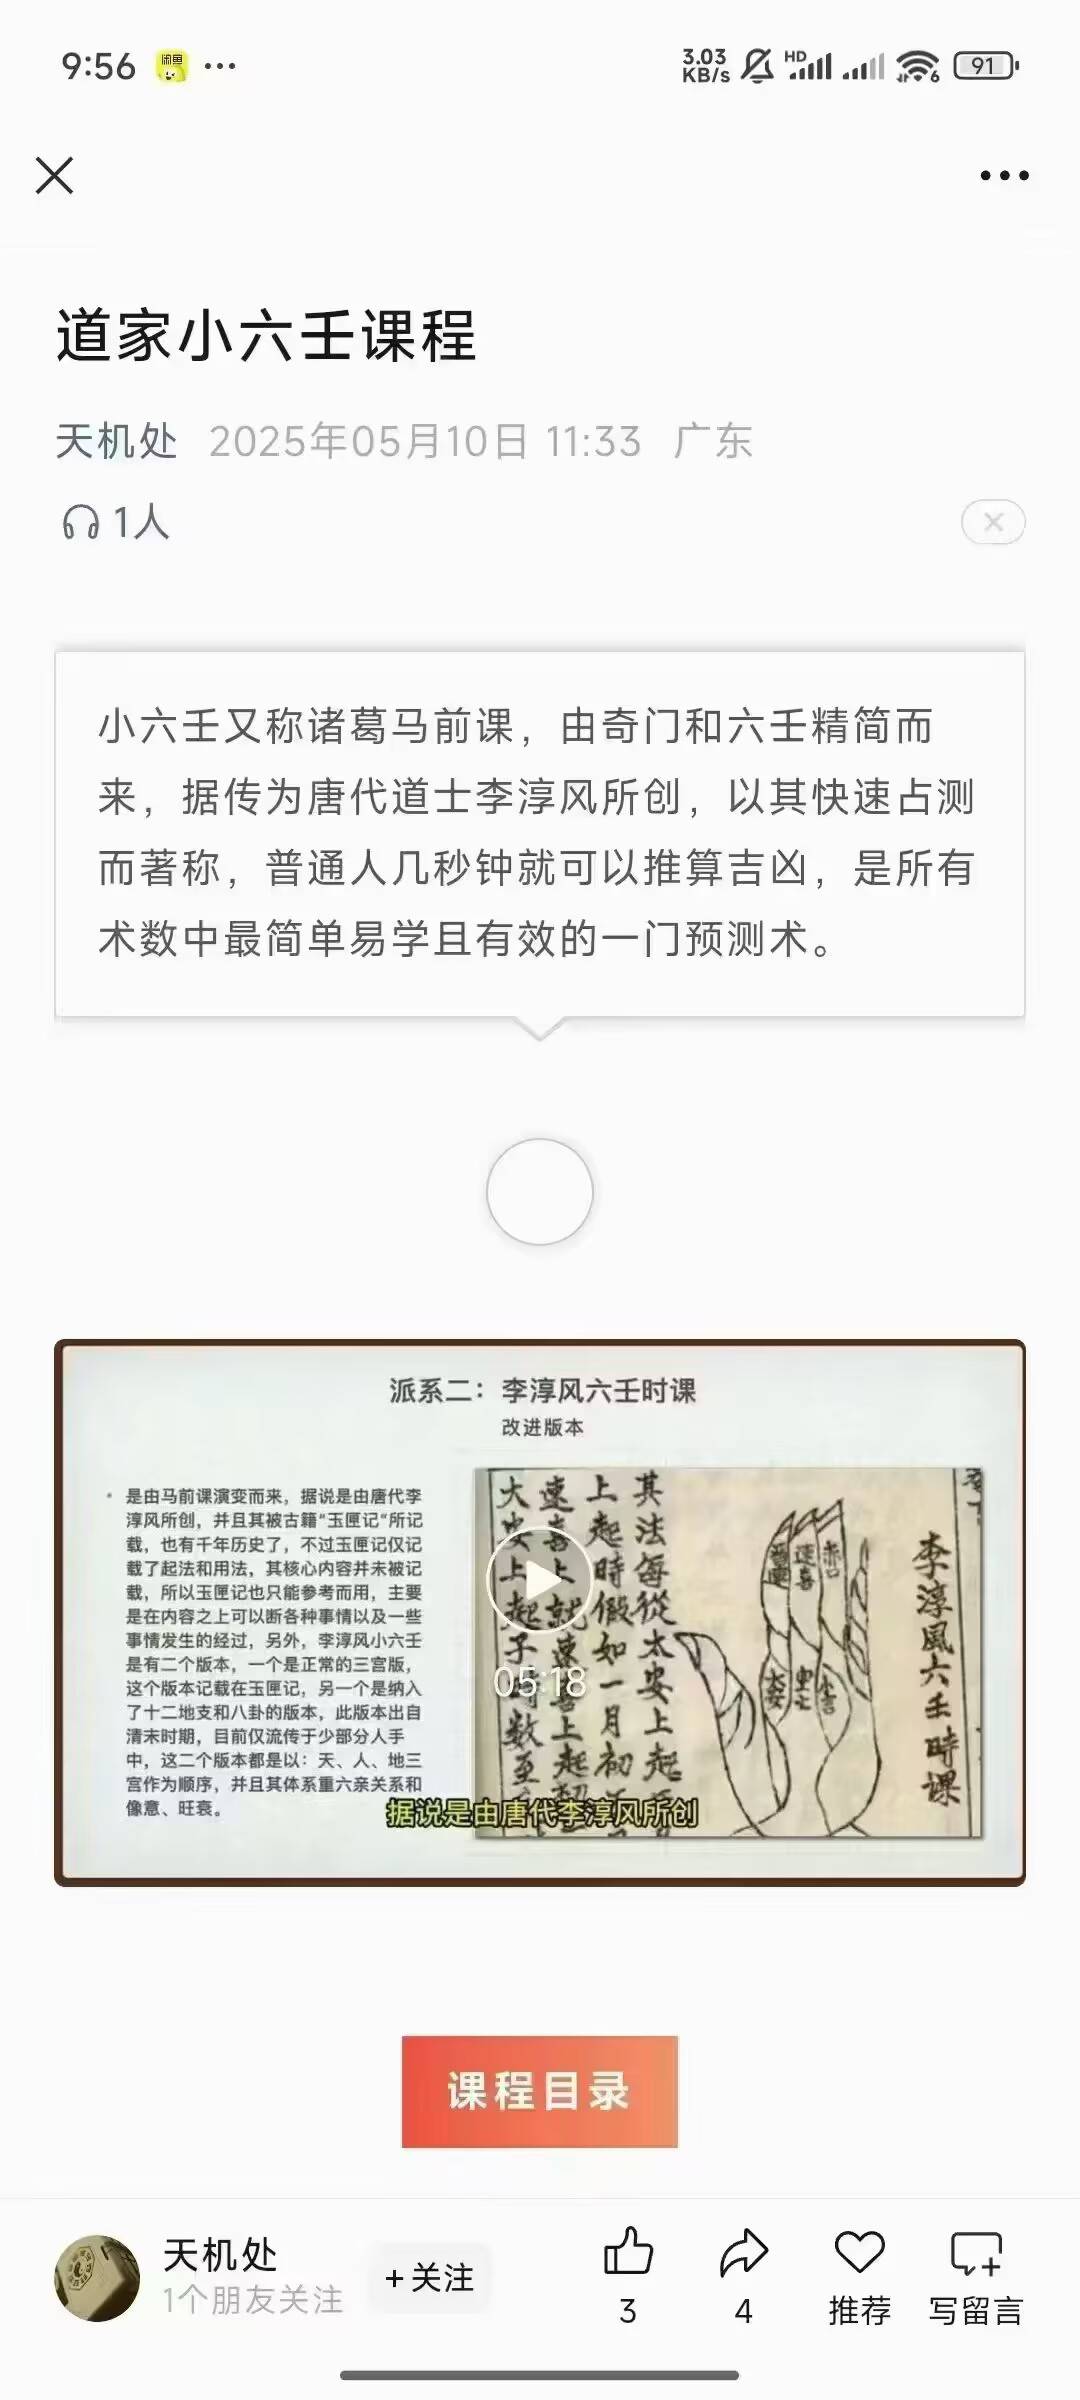 9:56
闲鱼
3.03
KB/s
HD
6
91
道家小六壬课程
天机处 2025年05月10日 11:33 广东
1人
小六壬又称诸葛马前课，由奇门和六壬精简而
来，据传为唐代道士李淳风所创，以其快速占测
而著称，普通人几秒钟就可以推算吉凶，是所有
术数中最简单易学且有效的一门预测术。
派系二：李淳风六壬时课
改进版本
• 是由马前课演变而来，据说是由唐代李
淳风所创，并且其被古籍“玉匣记”所记
载，也有千年历史了，不过玉匣记仅记
载了起法和用法，其核心内容并未被记
载，所以玉匣记也只能参考而用，主要
是在内容之上可以断各种事情以及一些
事情发生的经过，另外，李淳风小六壬
是有二个版本，一个是正常的三宫版，
这个版本记载在玉匣记，另一个是纳入
了十二地支和八卦的版本，此版本出自
清末时期，目前仅流传于少部分人手
中，这二个版本都是以：天、人、地三
宫作为顺序，并且其体系重六亲关系和
像意、旺衰。
李淳風六壬時課
赤口
速喜
留連
小吉
大安
其法每從大安上起
上起時假如一月初
速喜上就速喜上起
大安上起子時数至
05:18
据说是由唐代李淳风所创
课程目录
天机处
1个朋友关注
+关注
3
4
推荐
写留言